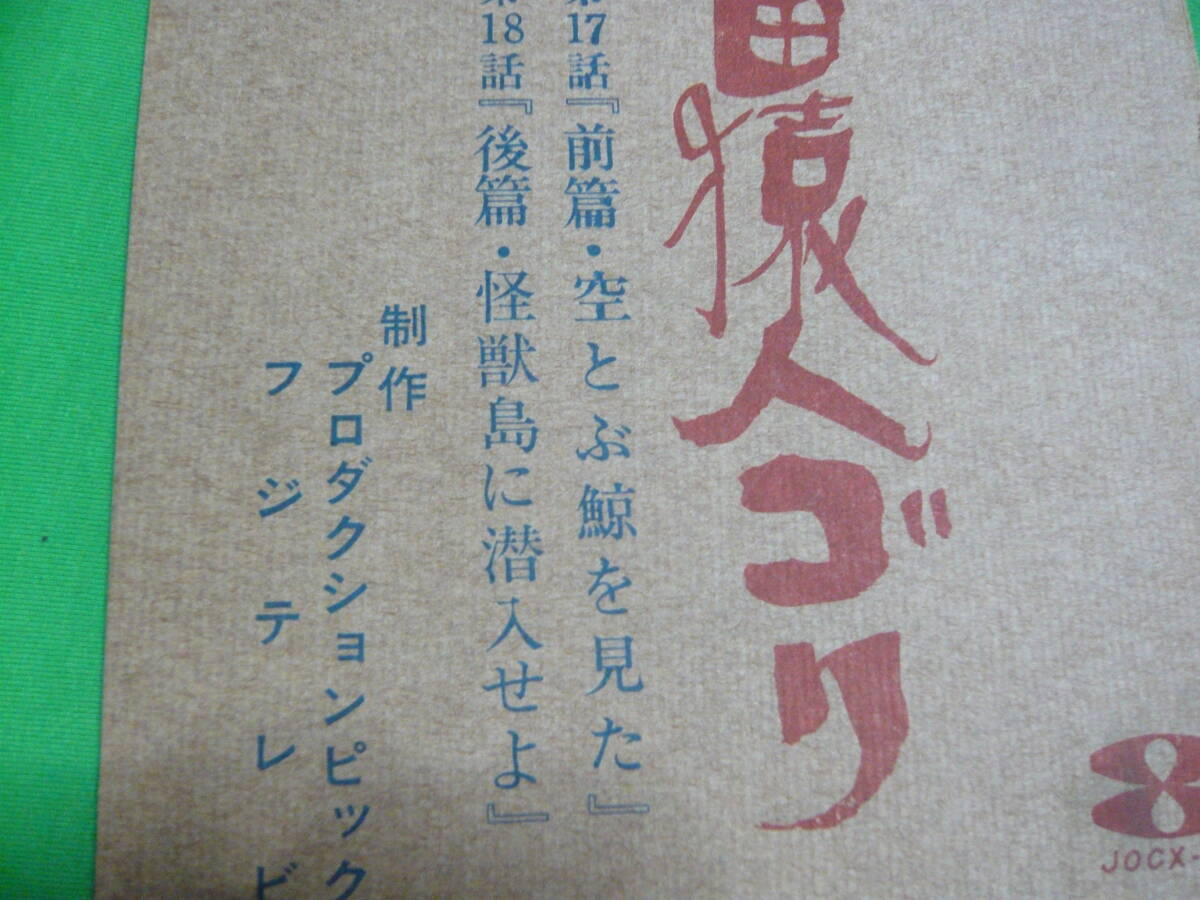 猿人ゴリ
第17話『前篇・空とぶ鯨を見た』
第18話『後篇・怪獣島に潜入せよ』
制作
プロダクションピック
フジテレビ
8
JOCX-